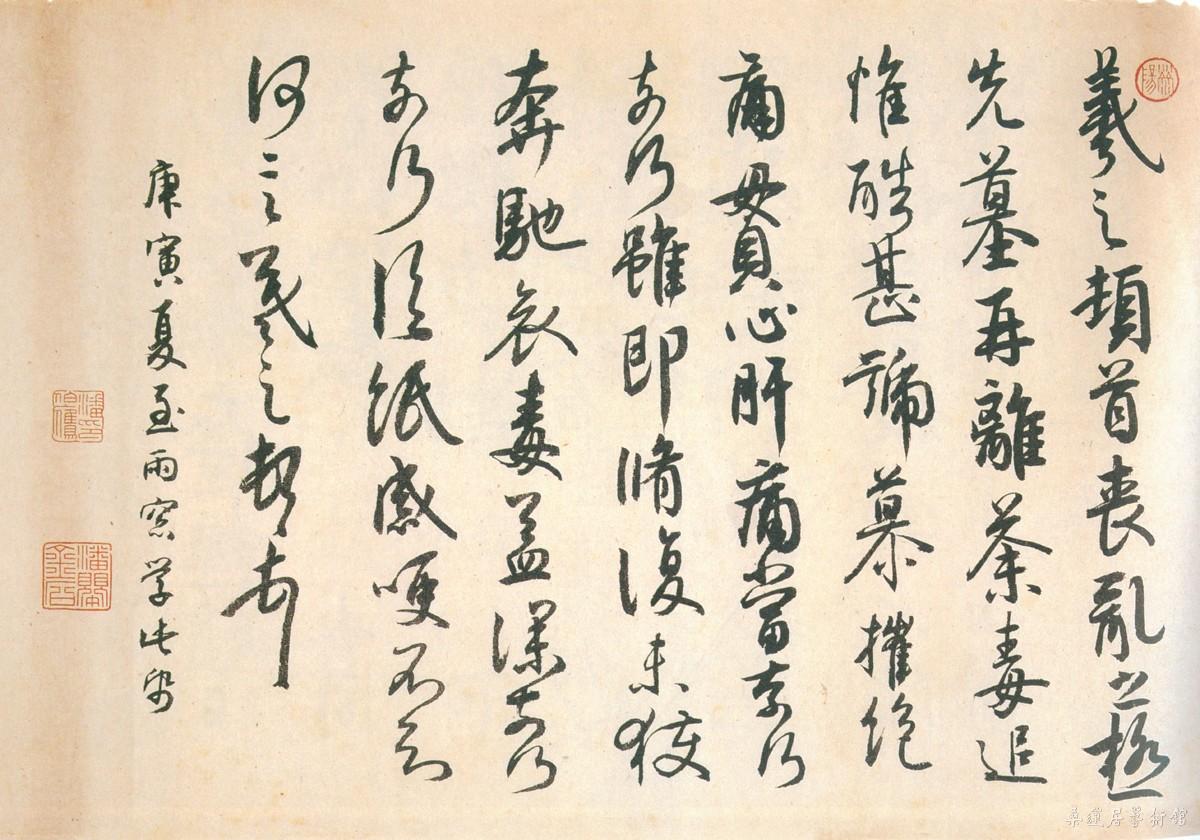 羲之頓首喪亂之極
先墓再離荼毒追
惟酷甚號慕摧絕
痛貫心肝痛當奈何
奈何雖即脩復未獲
奔馳哀毒益深奈何
奈何臨紙感哽不知
何言羲之頓首
庚寅夏至雨窓學此
桑蓮居藝術館